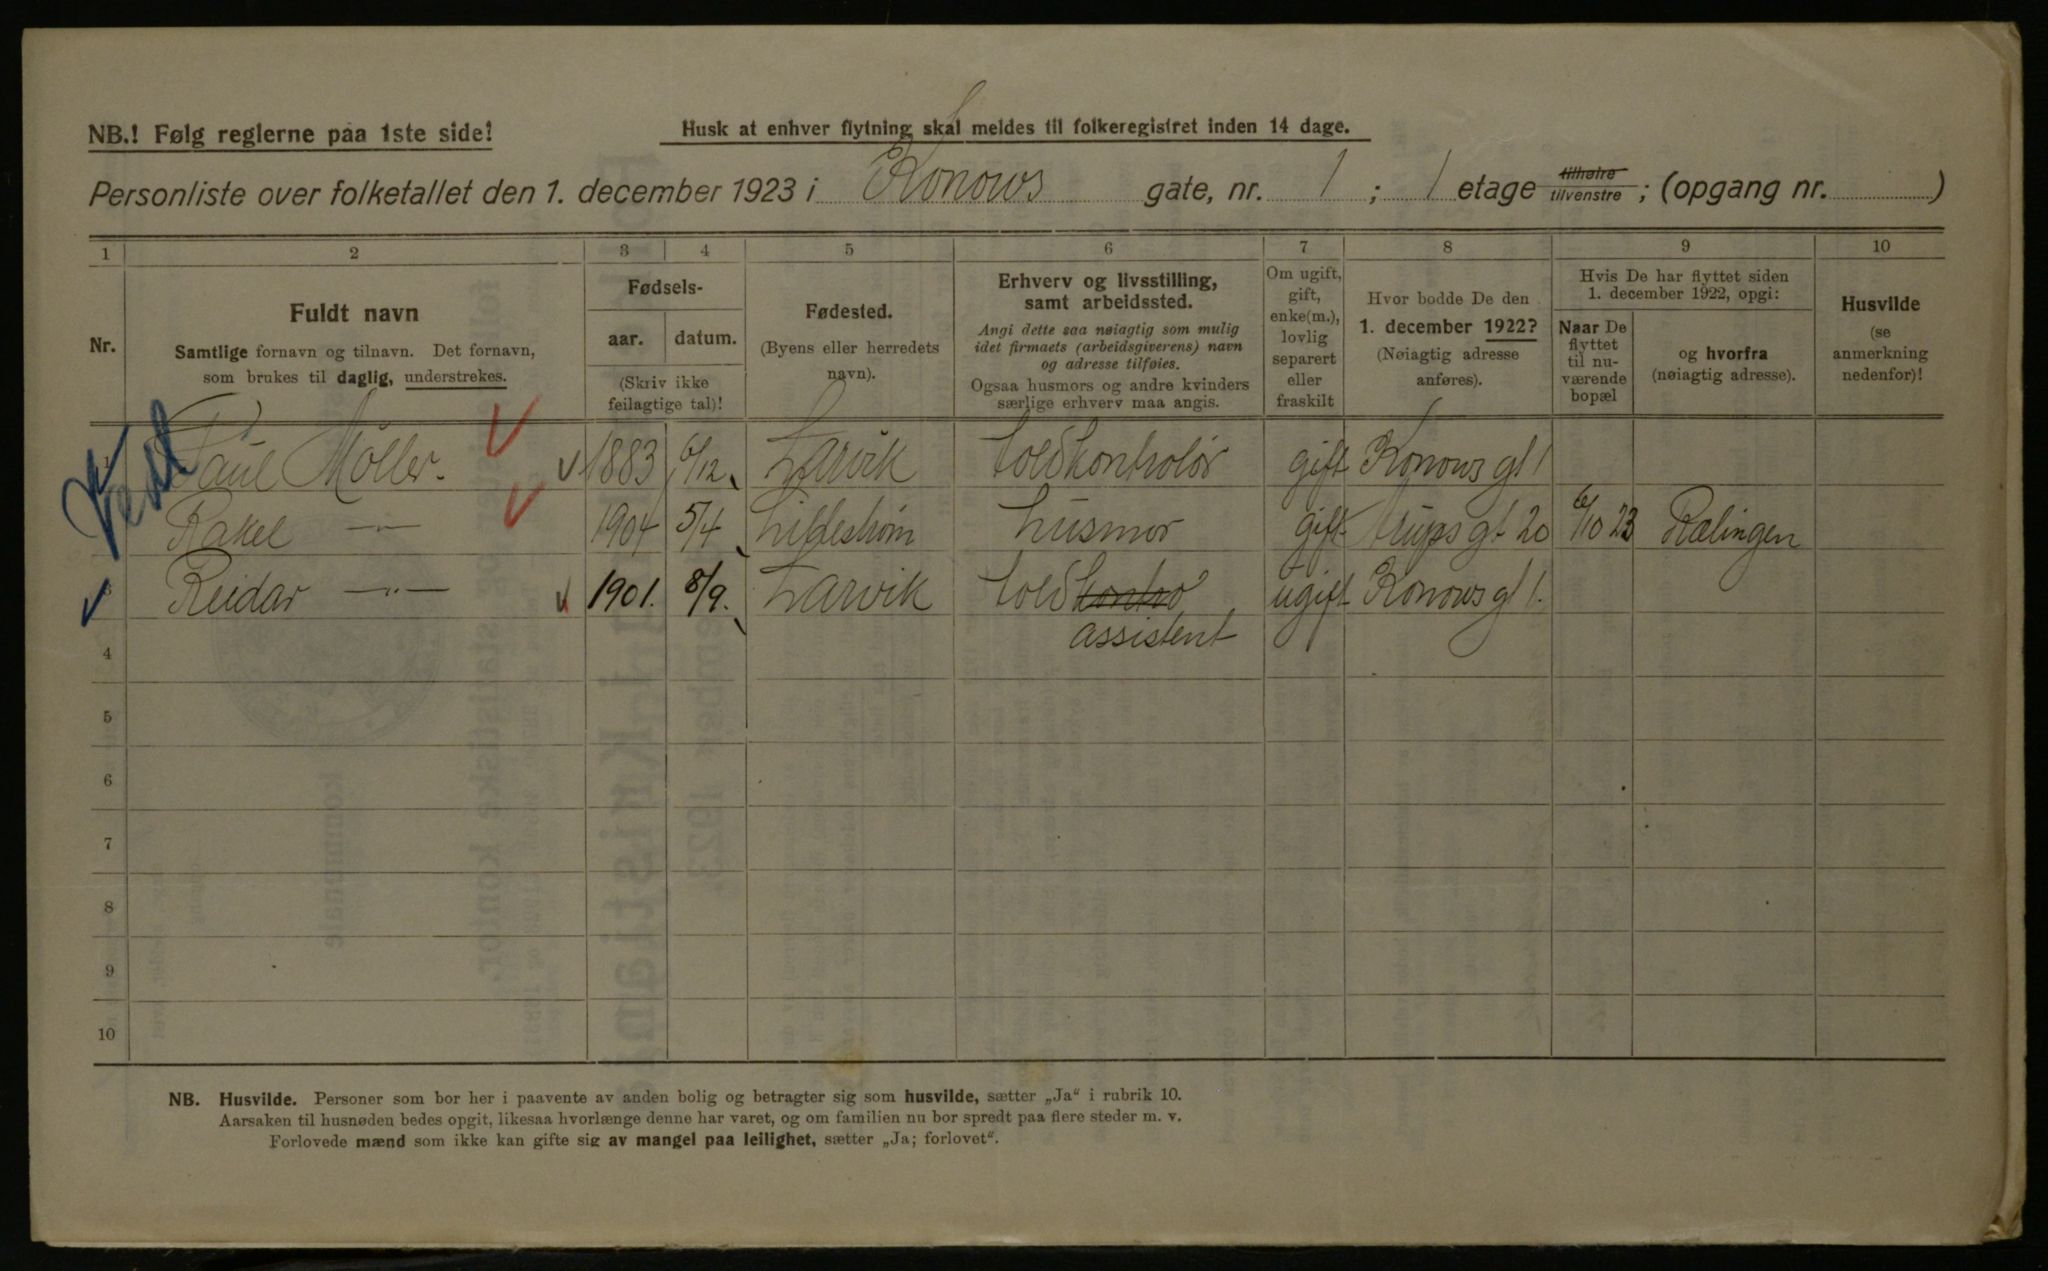 NB.! Følg reglerne paa 1ste side!
Husk at enhver flytning skal meldes til folkeregistret inden 14 dage.
Personliste over folketallet den 1. december 1923 i Konows gate, nr. 1 ; 1 etage tilhøire tilvenstre ; (opgang nr. )
1 2 3 4 5 6 7 8 9 10
Nr.
Fuldt navn
Samtlige fornavn og tilnavn. Det fornavn,
som brukes til daglig, understrekes.
Fødsels-
aar. datum.
(Skriv ikke
feilagtige tal)!
Fødested.
(Byens eller herredets
navn).
Erhverv og livsstilling,
samt arbeidssted.
Angi dette saa nøiagtig som mulig
idet firmaets (arbeidsgiverens) navn
og adresse tilføies.
Ogsaa husmors og andre kvinders
særlige erhverv maa angis.
Om ugift,
gift,
enke(m.),
lovlig
separert
eller
fraskilt
Hvor bodde De den
1. december 1922?
(Nøiagtig adresse
anføres).
Hvis De har flyttet siden
1. december 1922, opgi:
Naar De
flyttet
til nu-
værende
bopæl
og hvorfra
(nøiagtig adresse).
Husvilde
(se
anmerkning
nedenfor)!
Paul Möller. 1883 6/12 Larvik toldkontrolør gift Konows gt 1
Rakel —"— 1904 5/4 Lillestrøm husmor gift gt 20 6/10 23 Rælingen
3 Reidar —"— 1901. 8/9. Larvik told kontro ugift Konows gt 1.
assistent
4
5
6
7
8
9
10
NB. Husvilde. Personer som bor her i paavente av anden bolig og betragter sig som husvilde, sætter „Ja“ i rubrik 10.
Aarsaken til husnøden bedes opgit, likesaa hvorlænge denne har varet, og om familien nu bor spredt paa flere steder m. v.
Forlovede mænd som ikke kan gifte sig av mangel paa leilighet, sætter „Ja; forlovet“.